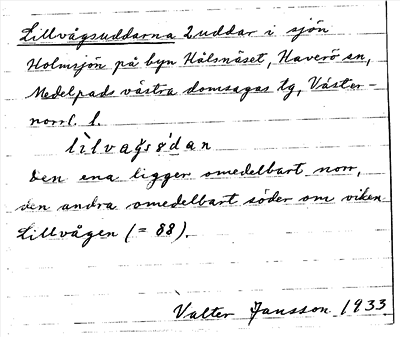 Lillvågsuddarna 2 uddar i sjön
Holmsjön på byn Kålsnäset, Haverö sn,
Medelpads västra domsagas tg, Väster-
norrl. l.
lìlvagsø̀dan
den ena ligger omedelbart norr,
den andra omedelbart söder om viken
Lillvågen (= 88).
Valter Jansson 1933